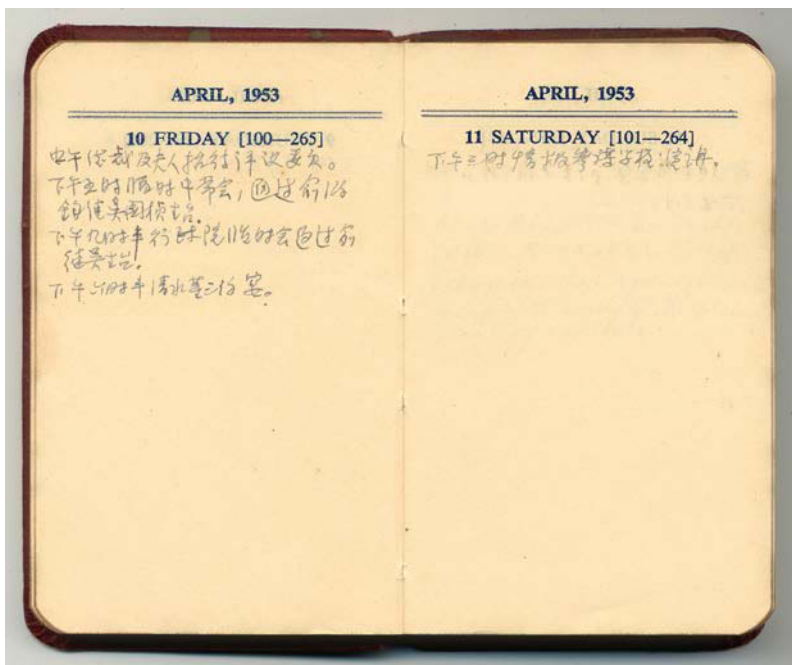 APRIL, 1953
10 FRIDAY [100—265]
中午总裁及夫人招待评议委员。
下午五时临时中常会，通过俞鸿
钧继吴国桢主台。
下午九时半行政院临时会通过俞
继吴主台。
下午六时半清水董三约宴。
APRIL, 1953
11 SATURDAY [101—264]
下午三时情报参谋学校演讲。